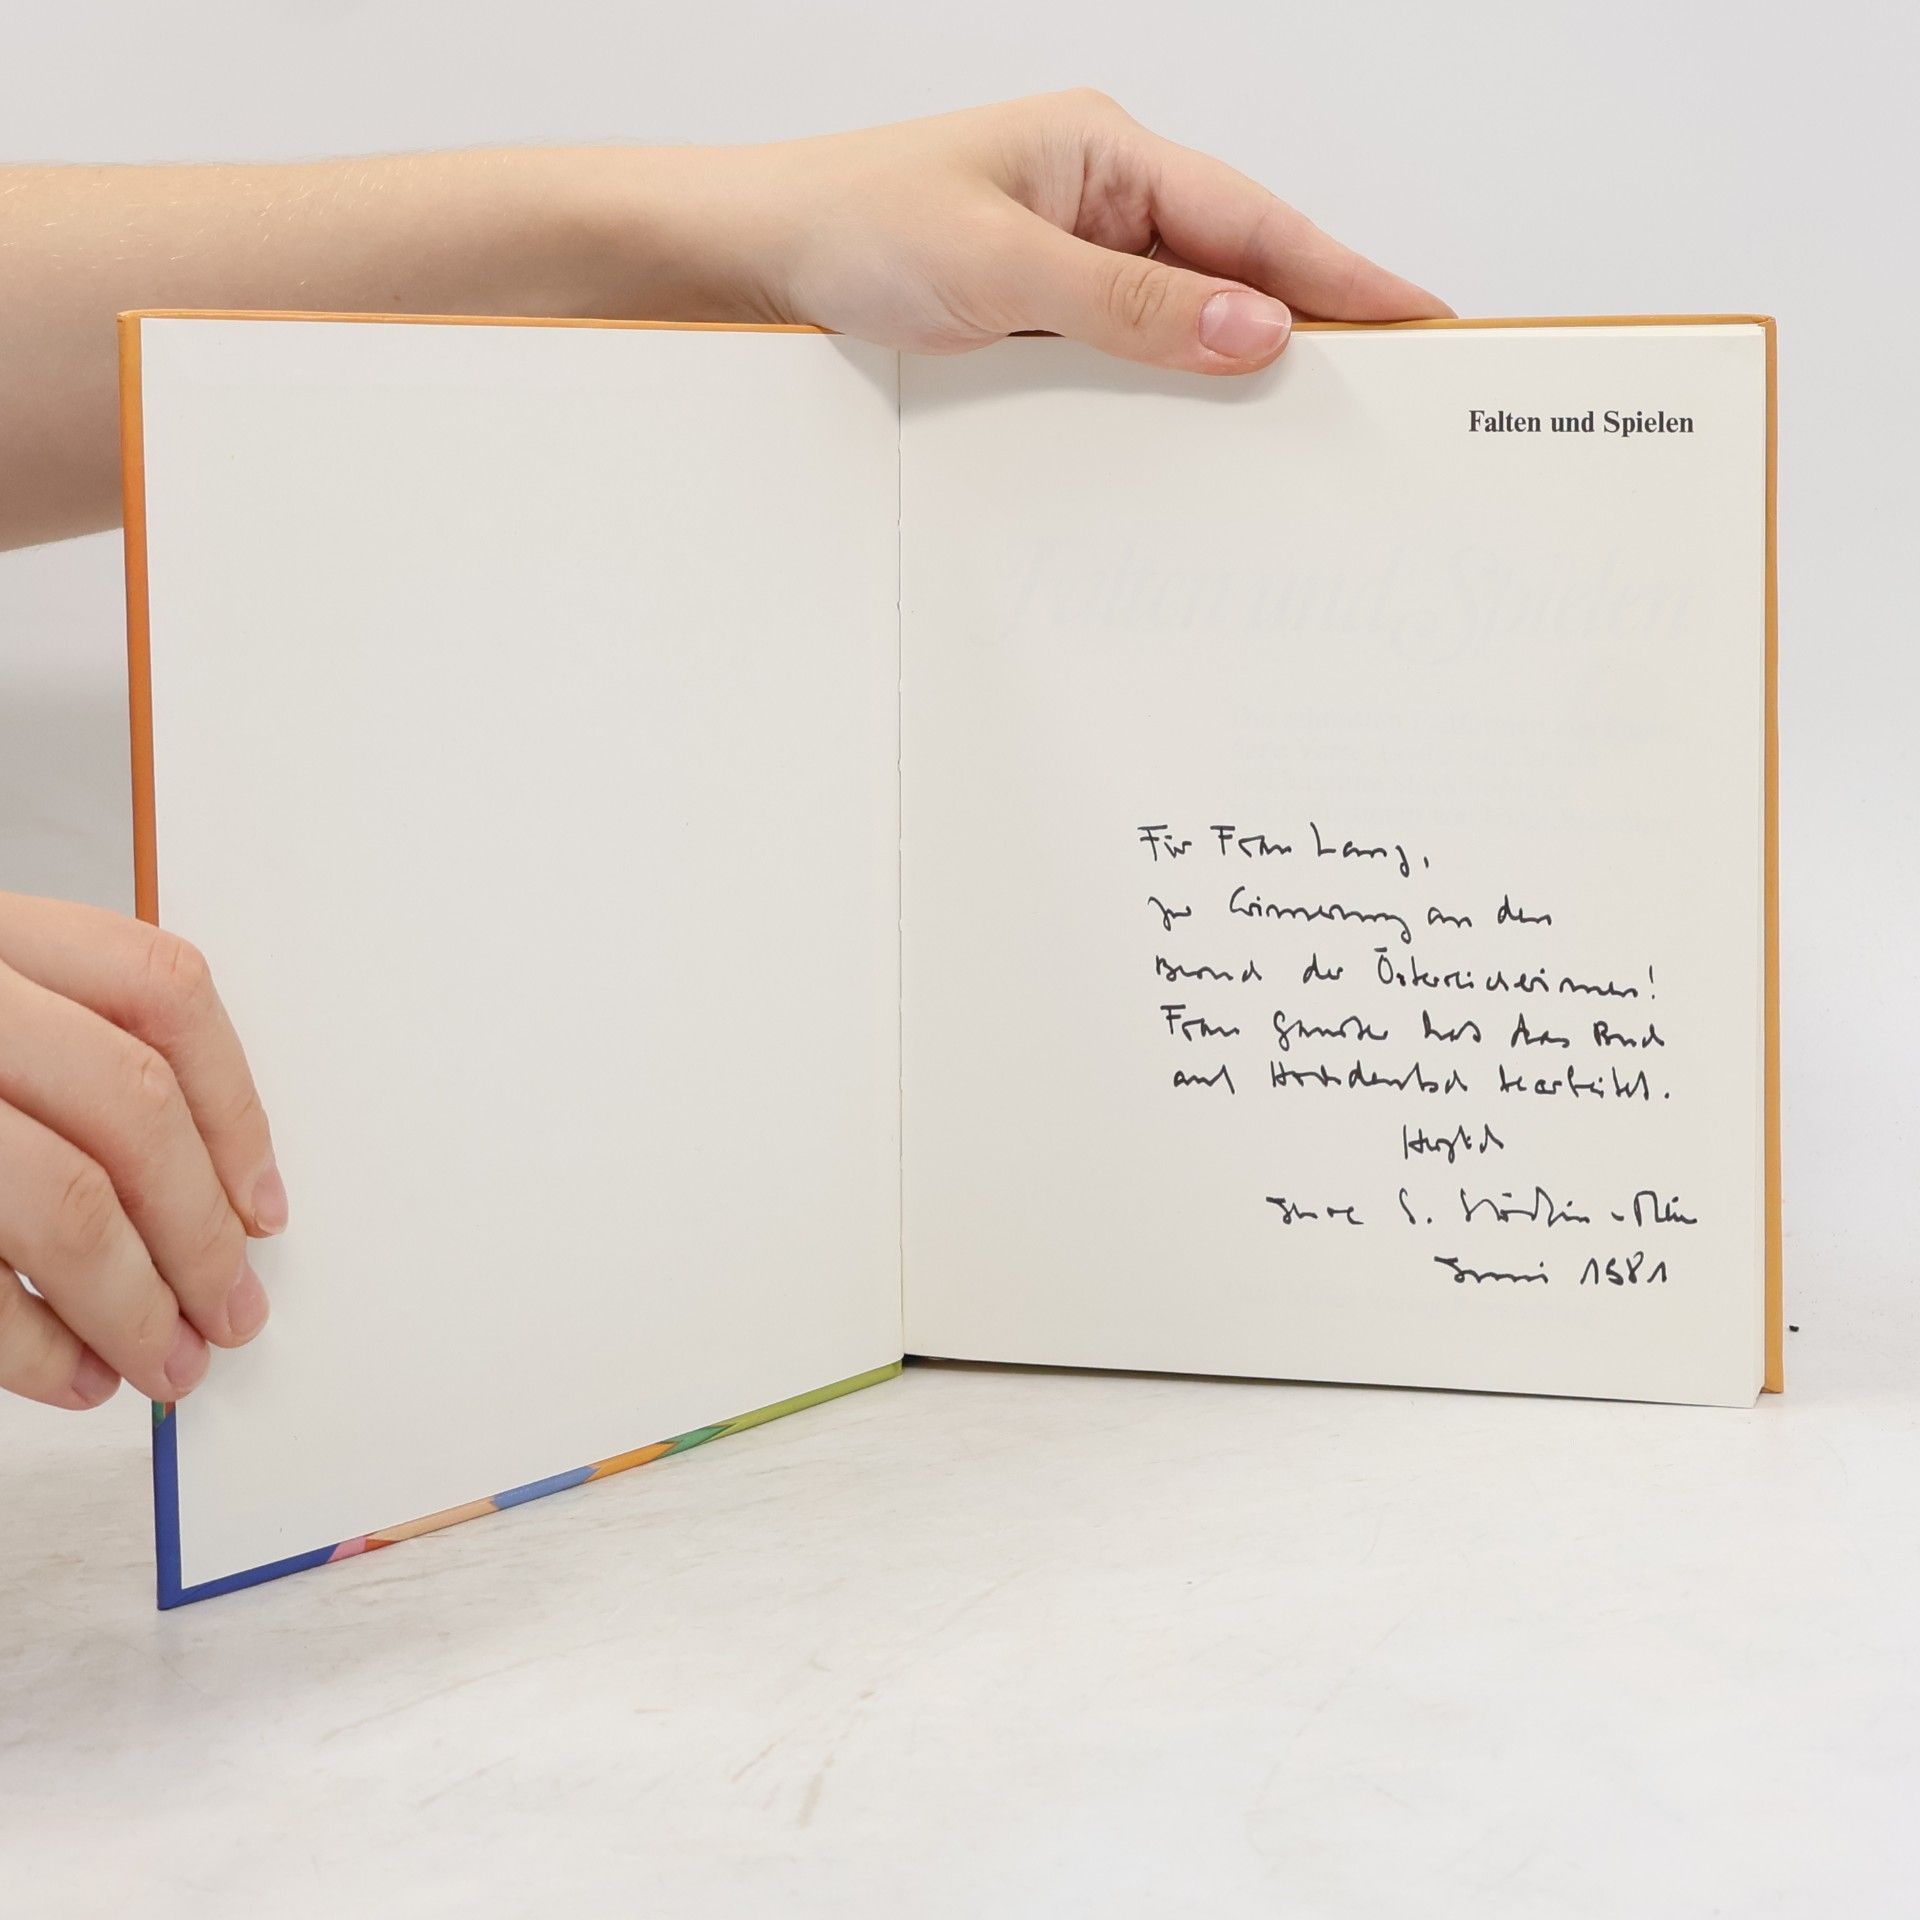 Falten und Spielen
Falten und Spielen
Für Frau Lang,
zur Erinnerung an den
Besuch der Österreicherinnen!
Frau hat das Buch
auf Hochdeutsch bearbeitet.
Herzlich
Susanne
Juni 1981